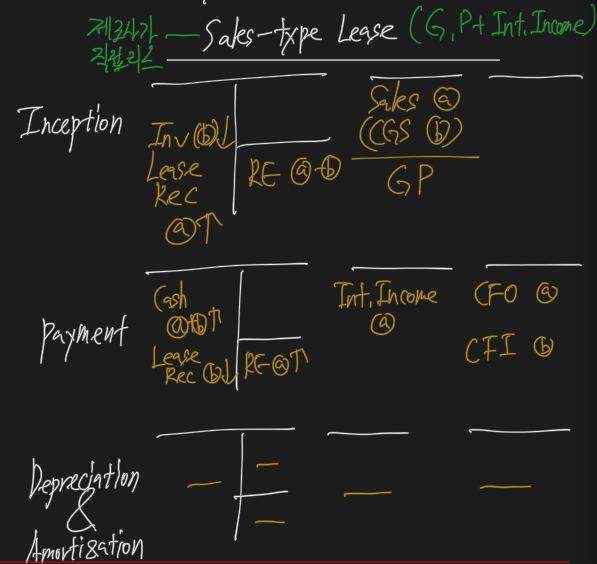 제조사가 — Sales-type Lease (G.P + Int. Income)
직렬리스
Inception
Inv ⓑ↓
Lease
Rec
ⓐ↑
RE ⓐ-ⓑ
Sales ⓐ
(CGS ⓑ)
GP
Payment
Cash
ⓐ+ⓑ↑
Lease
Rec ⓑ↓
RE ⓐ↑
Int. Income
ⓐ
CFO ⓐ
CFI ⓑ
Depreciation
&
Amortization